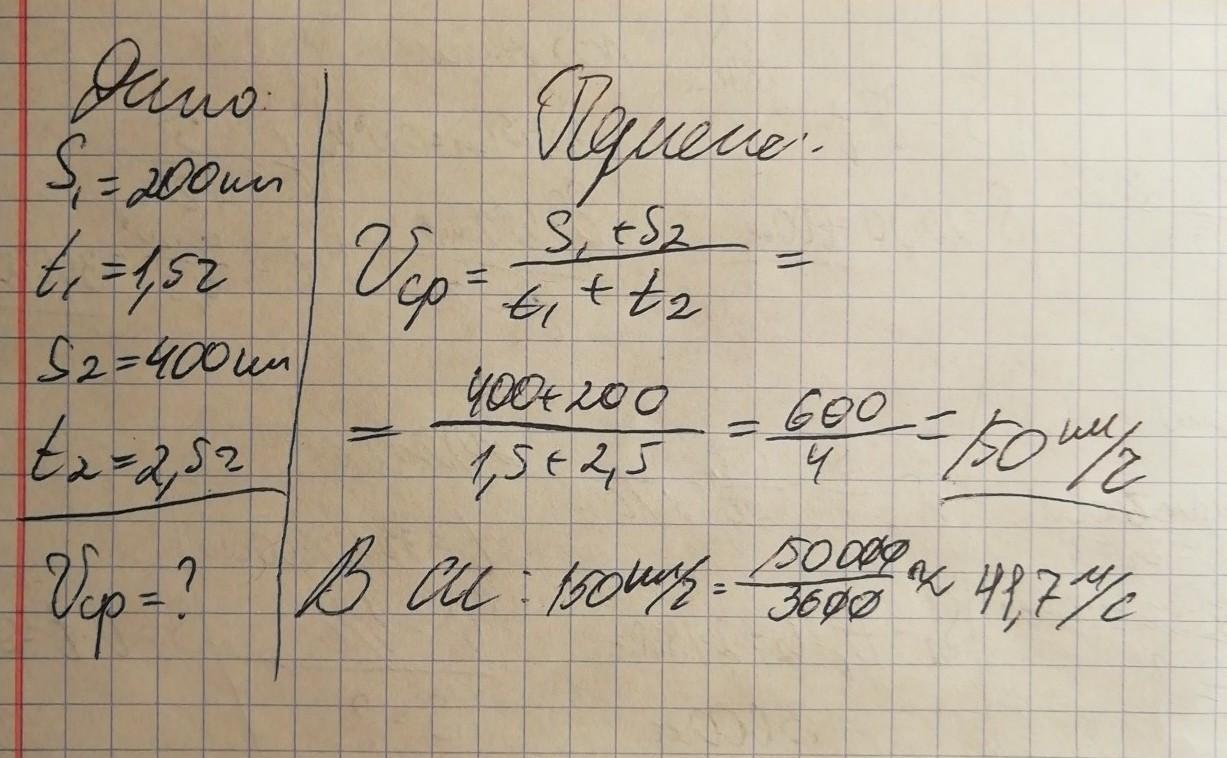 Дано:
S₁ = 200 км
t₁ = 1,5 ч
S₂ = 400 км
t₂ = 2,5 ч
Vср = ?
Vср = (S₁ + S₂) / (t₁ + t₂) =
= (400 + 200) / (1,5 + 2,5) = 600 / 4 = 150 км/ч
В СИ: 150 км/ч = 150000 / 3600 ≈ 41,7 м/с